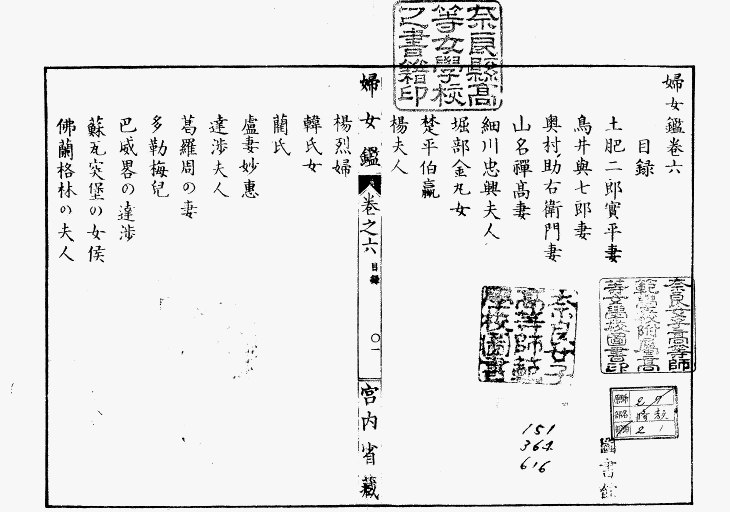 婦女鑑卷六
目録
土肥二郎實平妻
鳥井與七郎妻
奥村助右衛門妻
山名禪髙妻
細川忠興夫人
堀部金丸女
楚平伯嬴
楊夫人
婦女鑑
卷之六
目録
〇一
宮内省藏
楊烈婦
韓氏女
藺氏
盧妻妙惠
達渉夫人
葛羅周の妻
多勒梅兒
巴威畧の達渉
蘇瓦突堡の女侯
佛蘭格林の夫人
奈良縣髙
等女學校
之書籍印
奈良女子高等師
範學校附屬高
等女學校圖書印
奈良女子
高等師範
學校圖書
圖書館
151
364
616